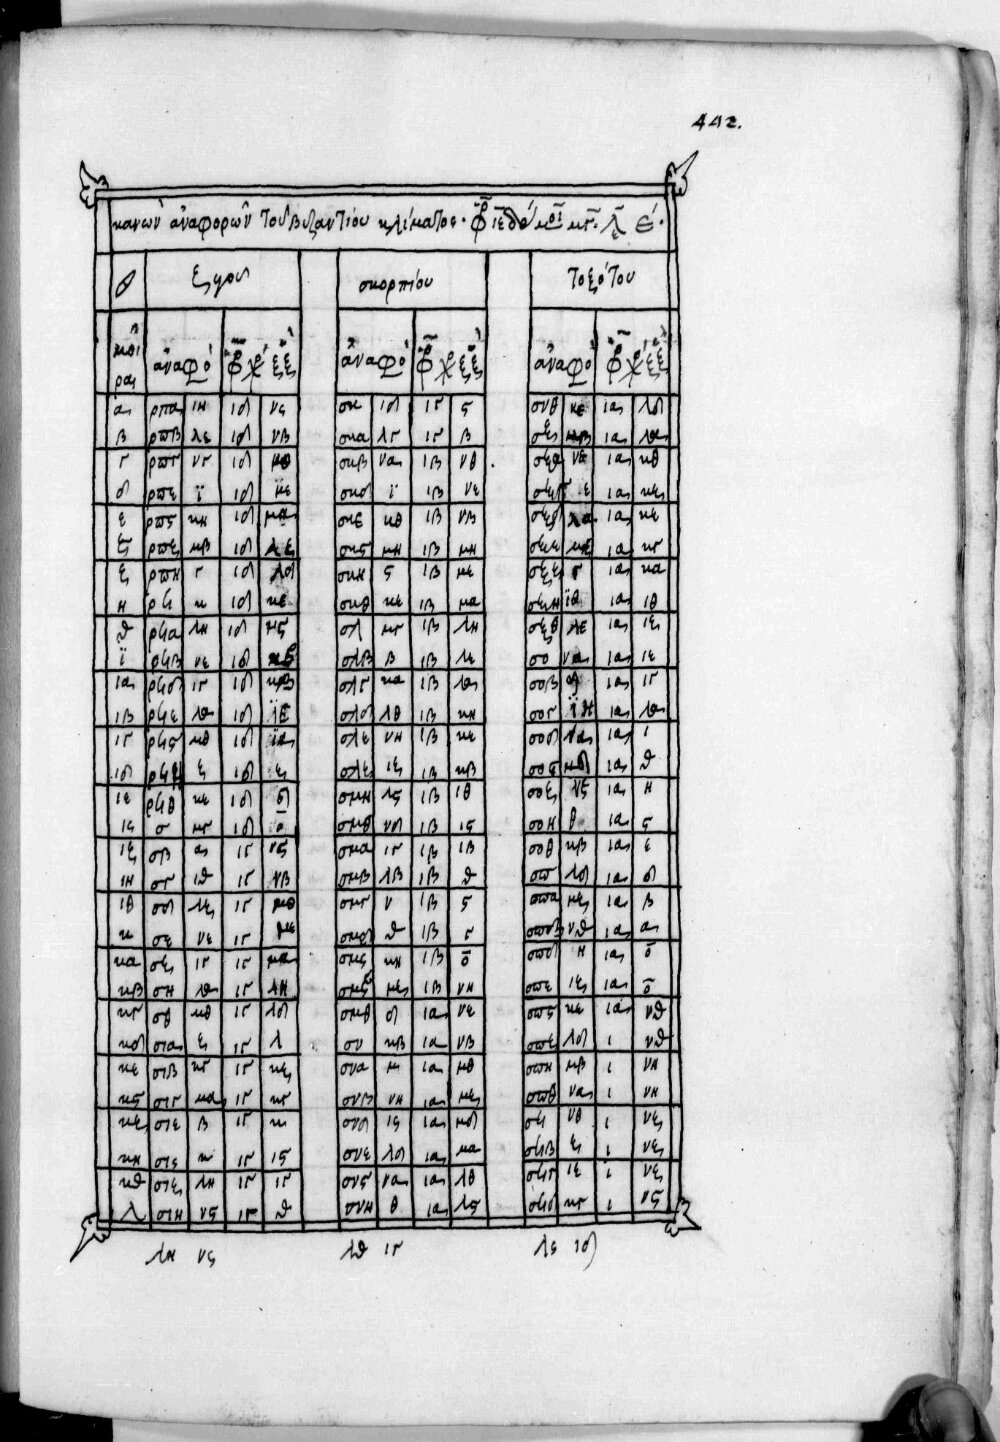 442.
κανών ἀναφορῶν τοῦ Βυζαντίου κλίματος
ζυγοῦ σκορπίου τοξότου
μοίρας ἀναφο ἀναφο ἀναφο
α ρπα ιη ιδ νϛ σκ ιδ ιγ ϛ σνθ κε ια λδ
β ρπβ λε ιδ νβ σκα λγ ιγ β σξ μβ ια λα
γ ρπγ νγ ιδ μθ σκβ να ιβ νθ ια κθ
δ ρπε ϊ ιδ με σκδ ϊ ιβ νε ιε ια κζ
ε ρπϛ κη ιδ μα σκε κθ ιβ νβ σξδ λα ια κε
ϛ ρπζ μβ ιδ λζ σκϛ μη ιβ μη σξε μζ ια κγ
ζ ρπη γ ιδ λδ σκη ϛ ιβ με σξζ γ ια κα
η ρϟ κ ιδ κε σκθ κε ιβ μα σξη ϊθ ια ιθ
θ ρϟα λη ιδ κϛ σλ μγ ιβ λη σξθ λε ια ιζ
ϊ ρϟβ νε ιδ σλβ β ιβ λε σο να ια ιε
ια ρϟδ ιγ ιδ κβ σλγ κα ιβ λα σοβ ζ ια ιγ
ιβ ρϟε λα ιδ ϊε σλδ λθ ιβ κη σογ ια ια
ιγ ρϟϛ μθ ιδ ϊα σλε νη ιβ κε σοδ να ια ι
ιδ ρϟη ζ ιδ ζ σλζ ιζ ιβ κβ σοϛ ια θ
ιε ρϟθ κε ιδ δ σλη λϛ ιβ ιθ σοζ ια η
ιϛ σ μγ ιδ ο σλθ νδ ιβ ιϛ σοη θ ια ϛ
ιζ σβ α ιγ νϛ σμα ιγ ιβ ιβ σοθ κβ ια ε
ιη σγ ιθ ιγ νβ σμβ λβ ιβ θ σπ λδ ια δ
ιθ σδ λζ ιγ μθ σμγ ν ιβ ϛ σπα μζ ια β
κ σε νε ιγ με σμδ θ ιβ γ σπβ νθ ια α
κα σζ ιγ ιγ μα σμϛ κη ιβ ο σπδ η ια ο
κβ ση λα ιγ λη σμζ μζ ιβ νη σπε ιζ ια ο
κγ σθ μθ ιγ λδ σμθ δ ια νε σπϛ κε ια νθ
κδ σια ζ ιγ λ σν κβ ια νβ σπζ λδ ι νθ
κε σιβ κγ ιγ κζ σνα μ ια μθ σπη μβ ι νη
κϛ σιγ μα ιγ κγ σνβ νη ια μζ σπθ να ι νη
κζ σιε β ιγ κ σνδ ιϛ ια μδ σϟ νθ ι νζ
κη σιϛ κ ιγ ιϛ σνε λδ ια μα σϟβ ζ ι νζ
κθ σιζ λη ιγ ιγ σνϛ να ια λθ σϟγ ιε ι νζ
λ σιη νϛ ιγ θ σνη θ ια λϛ σϟδ κγ ι νϛ
λη νϛ λθ ιγ λϛ ιδ